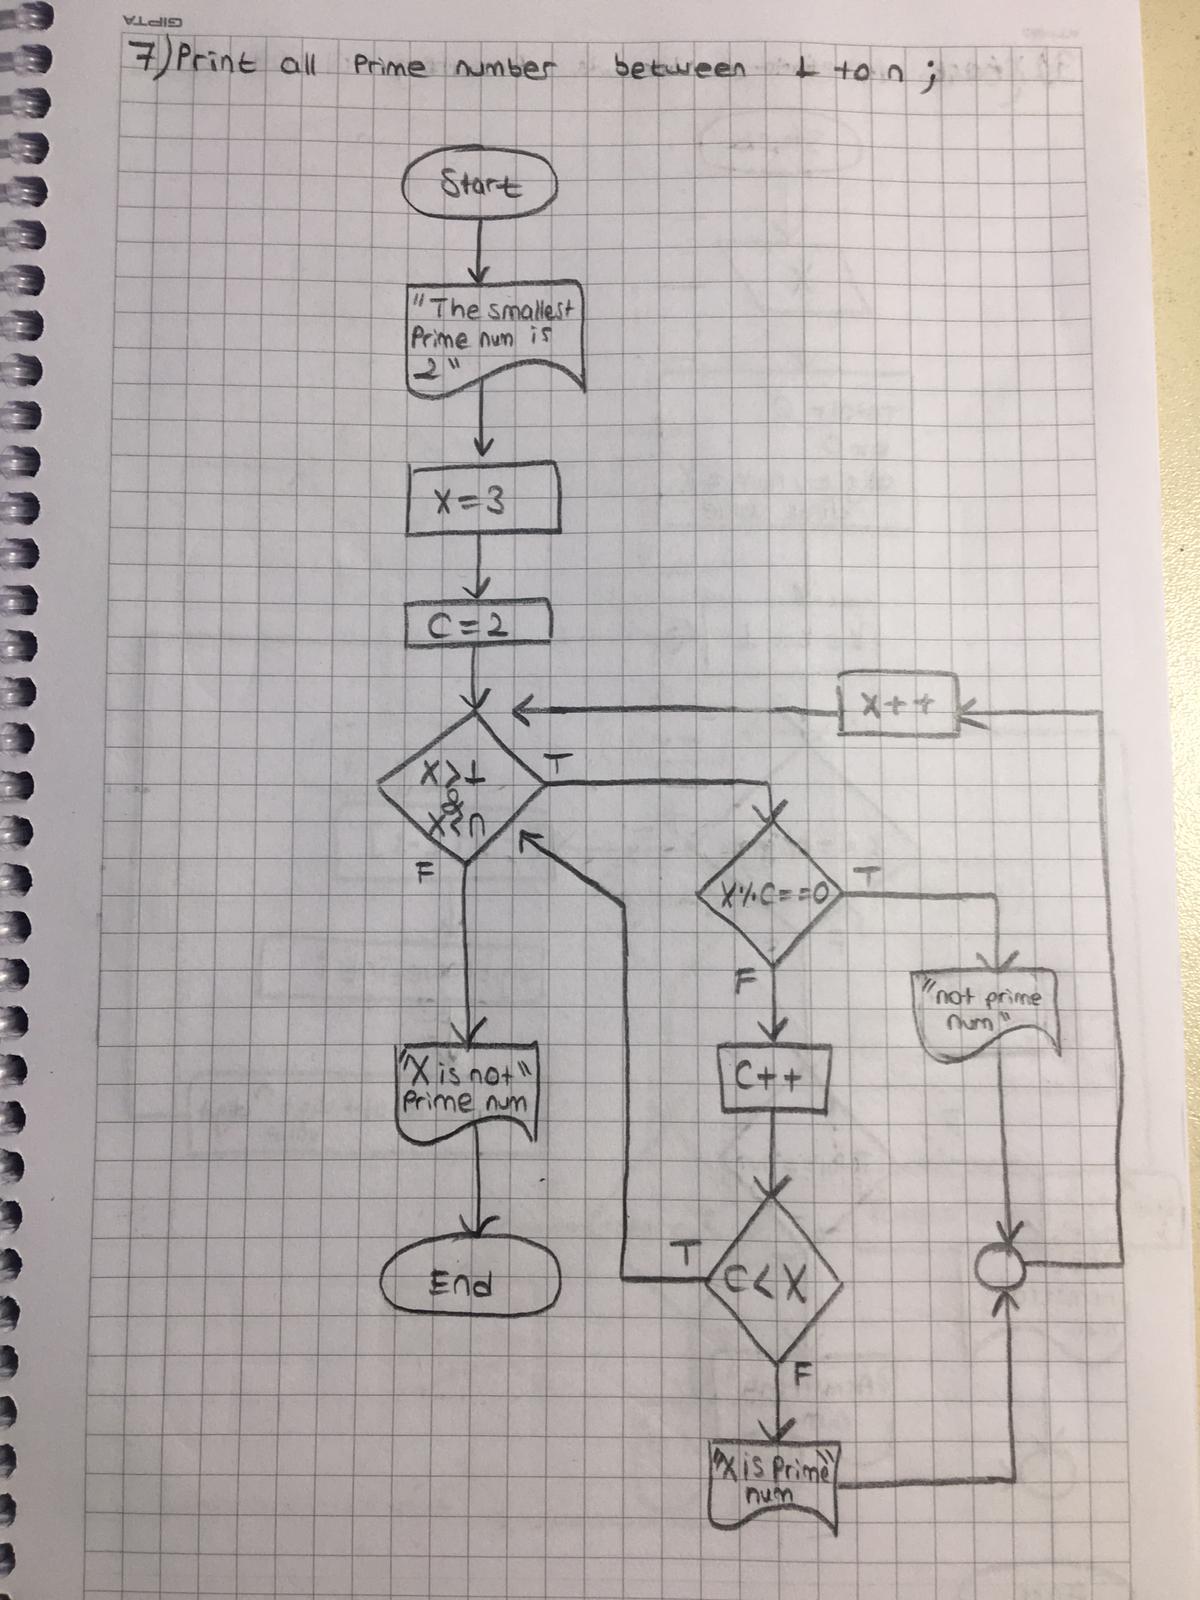 GIPTA
7) Print all Prime number between 1 to n ;
Start
"The smallest
Prime num is
2"
X=3
C=2
X++
X>1
&
X<n
T
F
X%C==0
T
F
"not prime
num"
"X is not"
Prime num
C++
End
C<X
T
F
"X is Prime"
num